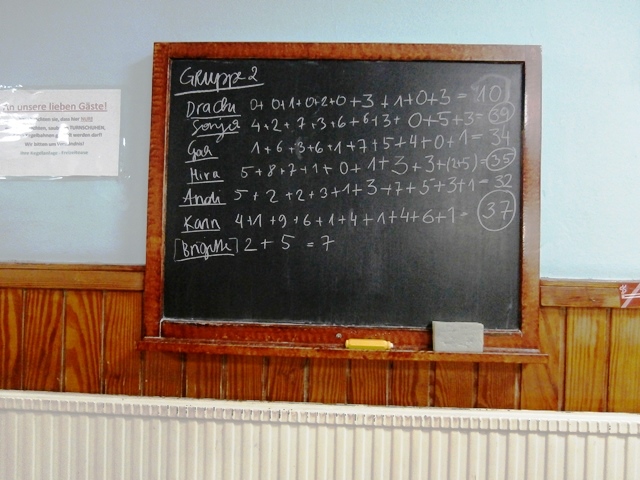 An unsere lieben Gäste!
GRUPPE 2
Drachu 0+0+1+0+2+0+3+1+0+3=10
Sonja 4+2+7+3+6+6+3+0+5+3=39
Gaa 1+6+3+6+1+7+5+4+0+1=34
Mira 5+8+7+1+0+1+3+3+(2+5)=35
Andi 5+2+2+3+1+3+7+5+3+1=32
Karin 4+1+9+6+1+4+1+4+6+1=37
[Brigitte] 2+5=7